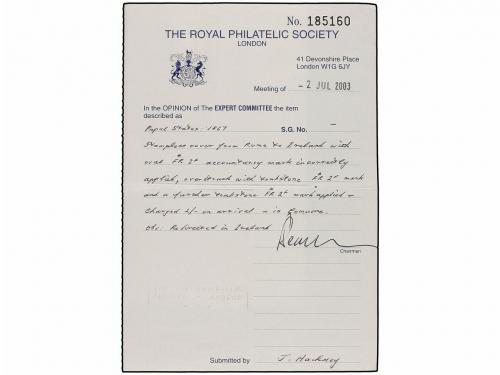 No. 185160
THE ROYAL PHILATELIC SOCIETY
LONDON
41 Devonshire Place
London W1G 6JY
Meeting of - 2 JUL 2003
In the OPINION of The EXPERT COMMITTEE the item
described as
Papal States: 1867 S.G. No. –
Stampless cover from Rome to Ireland with
oval FR 2d accountancy mark incorrectly
applied, overstruck with tombstone FR 2d mark
and a further tombstone FR 2d mark applied &
Charged 2/- on arrival - is genuine.
Redirected in Ireland
Chairman
Submitted by J. Hackney